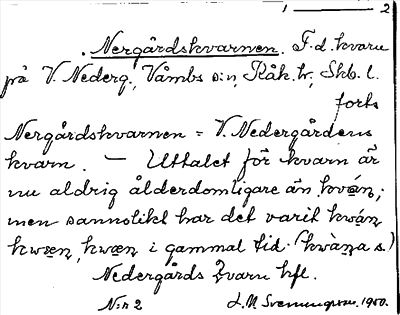 1 — 2
. Nergårdskvarnen. F.d. kvarn
på V. Nederg., Våmbs s:n, Kåk. hr, Skb. l.
forts
Nergårdskvarnen = V. Nedergårdens
kvarn. — Uttalet för kvarn är
nu aldrig ålderdomligare än kván;
men sannolikt har det varit kwán
kwæn, kwæn i gammal tid. (kwàna s.)
Nedergårds Qvarn hfl.
N:r 2 1950.